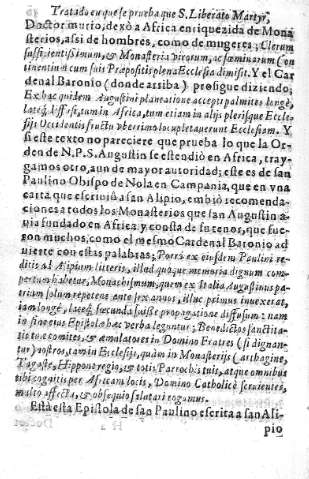 Tratado en que se prueba que S. Liberato Martyr,
Doctor murio, dexò a Africa enriquezida de Mona
sterios, assi de hombres, como de mugeres; Clerum
sufficientissimum, & Monasteria virorum, ac fœminarum con
tinentium cum suis Præpositis plena Ecclesiæ dimisit. Y el Car
denal Baronio (donde arriba) prosigue diziendo;
Ex hac quidem Augustini plantatione accepti palmites longè,
latèq; diffusi, tum in Africa, tum etiam in alijs plerisque Eccle
sijs Occidentis fructu vberrimo locupletauerunt Ecclesiam. Y
si este texto no pareciere que prueba lo que la Or
den de N.P.S. Augustin se estendiò en Africa, tray
gamos otro, aun de mayor autoridad; este es de san
Paulino Obispo de Nola en Campania, que en vna
carta que escriuiò a san Alipio, embiò recomenda
ciones a todos los Monasterios que san Augustin a-
uia fundado en Africa y consta de su tenor, que fue-
ron muchos, como el mesmo Cardenal Baronio ad
uierte con estas palabras; Porrò ex eiusdem Paulini re
ditis ad Alipium litteris, illud quoque memoria dignum com-
pertum habetur, Monachismum, quem ex Italia Augustinus pa-
triam solum repetens ante sex annos, illuc primus inuexerat,
iam longè, latèq; fœcunda fuisse propagatione diffusum: nam
in fine eius Epistolæ hæc verba leguntur; Benedictos sanctita-
tis tuæ comites, & æmulatores in Domino Fratres (si dignan-
tur) nostros, tam in Ecclesijs, quàm in Monasterijs Carthagine,
Tagaste, Hippone regio, & totis Parrochijs tuis, atque omnibus
tibi cognitis per Africam locis, Domino Catholicè seruientes,
multo affectu, & obsequio salutari rogamus.
Està esta Epistola de san Paulino escrita a san Ali-
pio